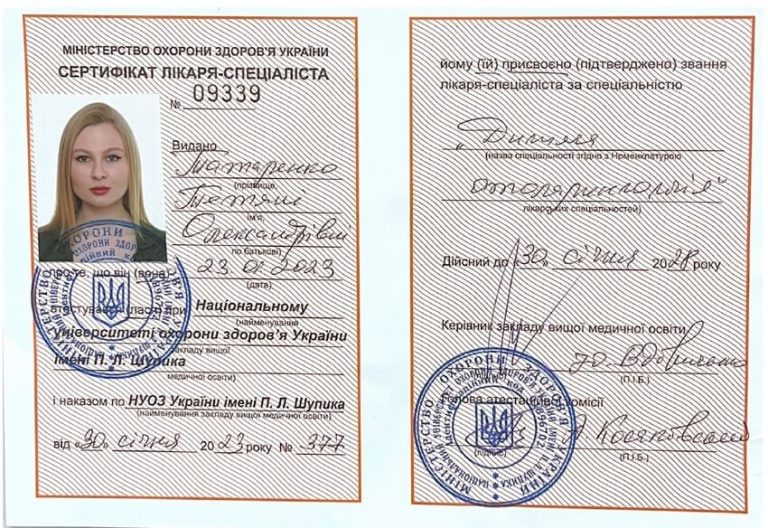 МІНІСТЕРСТВО ОХОРОНИ ЗДОРОВ'Я УКРАЇНИ
СЕРТИФІКАТ ЛІКАРЯ-СПЕЦІАЛІСТА
№ 09339
Видано
Татаренко
(прізвище,
Тетяні
ім'я,
Олександрівні
по батькові)
23.01.2023
(дата)
про те, що він (вона)
атестувався (лася) при Національному
(найменування
університеті охорони здоров'я України
закладу вищої
імені П. Л. Шупика
медичної освіти)
і наказом по НУОЗ України імені П. Л. Шупика
(найменування закладу вищої медичної освіти)
від «30» січня 2023 року № 377
йому (їй) присвоєно (підтверджено) звання
лікаря-спеціаліста за спеціальністю
„Дитяча
(назва спеціальності згідно з Номенклатурою
отоларингологія"
лікарських спеціальностей)
Дійсний до «30» січня 2028 року
Керівник закладу вищої медичної освіти
(П.І.Б.)
Голова атестаційної комісії
Косяковський
(підпис)
(П.І.Б.)
МІНІСТЕРСТВО ОХОРОНИ ЗДОРОВ'Я УКРАЇНИ